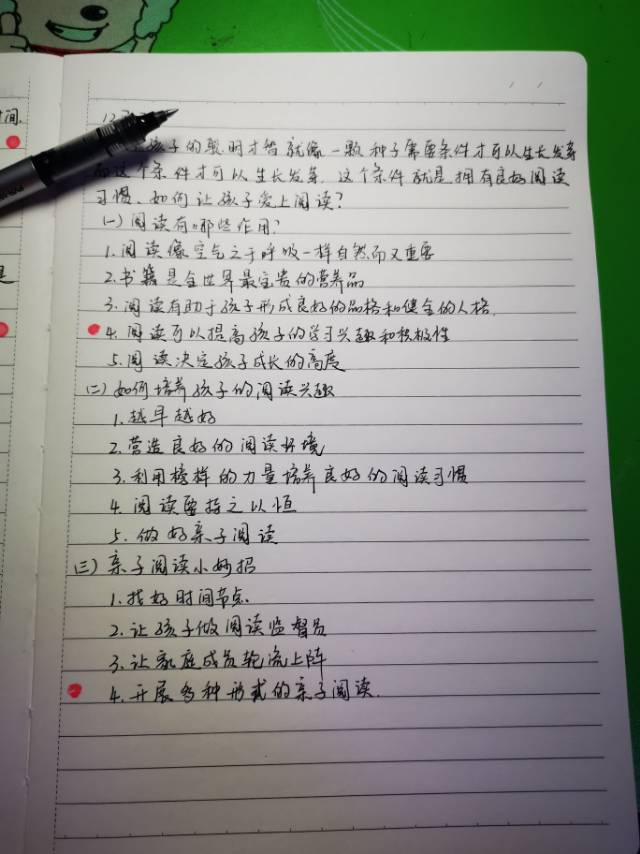 12
孩子的聪明才智就像一颗种子需要条件才可以生长发芽
而这个条件才可以生长发芽.这个条件就是拥有良好阅读
习惯、如何让孩子爱上阅读?
(一)阅读有哪些作用?
1.阅读像空气之于呼吸一样自然而又重要
2.书籍是全世界最宝贵的营养品
3.阅读有助于孩子形成良好的品格和健全的人格.
4.阅读可以提高孩子的学习兴趣和积极性
5.阅读决定孩子成长的高度
(二)如何培养孩子的阅读兴趣
1.越早越好
2.营造良好的阅读环境
3.利用榜样的力量培养良好的阅读习惯
4.阅读要持之以恒
5.做好亲子阅读
(三)亲子阅读小妙招
1.找好时间节点.
2.让孩子做阅读监督员
3.让家庭成员轮流上阵
4.开展多种形式的亲子阅读.
间.
是